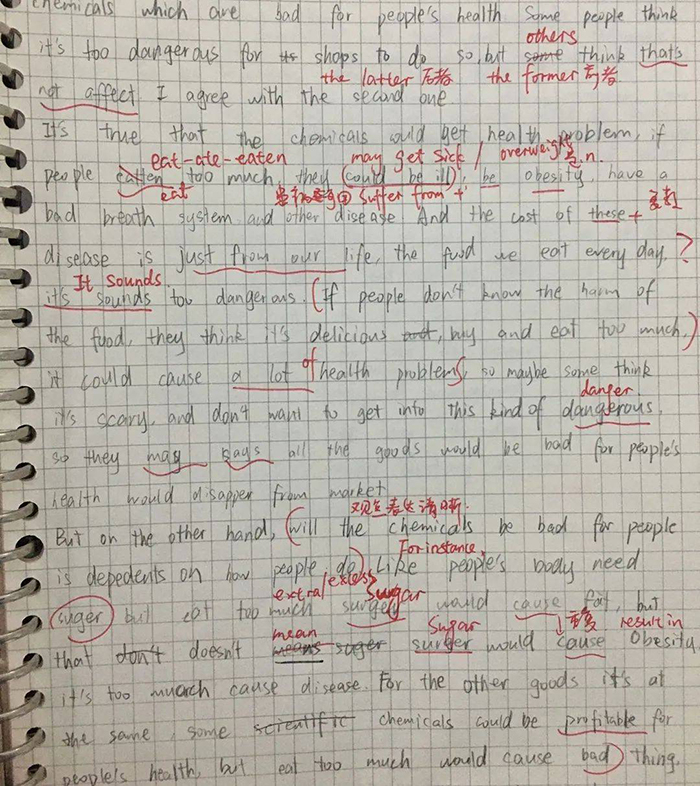 chemicals which are bad for people's health Some people think
others
it's too dangerous for its shops to do so, but some think thats
the latter 后者 the former 前者
not affect. I agree with the second one.
It's true that the chemicals could get health problem, if
eat-ate-eaten may get sick / overweight n.
people eatten too much, they (could be ill), be obesity, have a
eat suffer from +
bad breath system and other disease. And the cost of these +
disease is just from our life, the food we eat every day. ?
It sounds
it's sounds too dangerous. (If people don't know the harm of
the food, they think it's delicious and, buy and eat too much.)
of
it could cause a lot health problems, so maybe some think
danger
it's scary, and don't want to get into this kind of dangerous.
so they may says all the goods would be bad for people's
health would disapper from market.
观点表达清晰.
But on the other hand, (will the chemicals be bad for people
For instance,
is depedents on how people do) Like people's body need
extra/excess sugar
suger but eat too much surgery would cause fat, but
mean Sugar ↓ result in
that don't doesn't means suger surger would cause obesity
it's too muach cause disease. For the other goods it's at
the same, some scientific chemicals could be profitable for
people's health, but eat too much would cause bad thing.